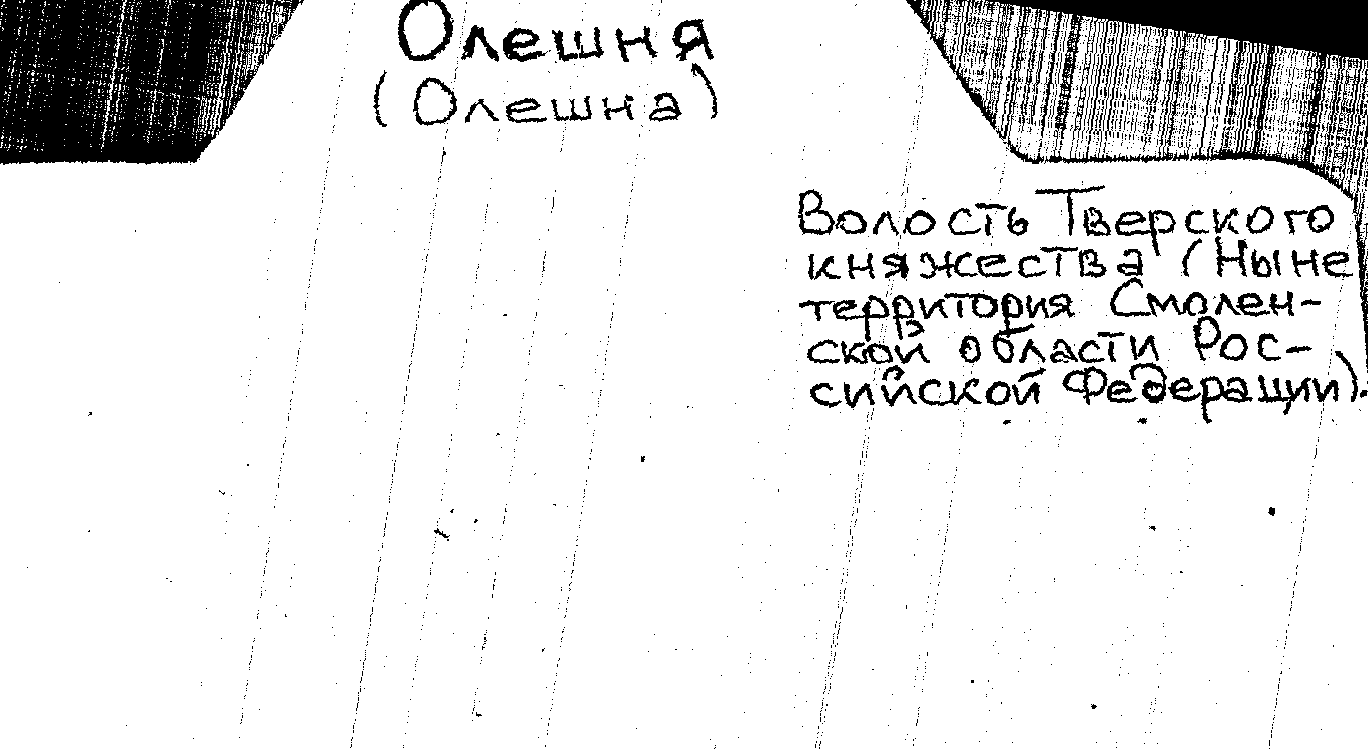 Олешня
(Олешна)
Волость Тверского
княжества (Ныне
территория Смолен-
ской области Рос-
сийской Федерации).